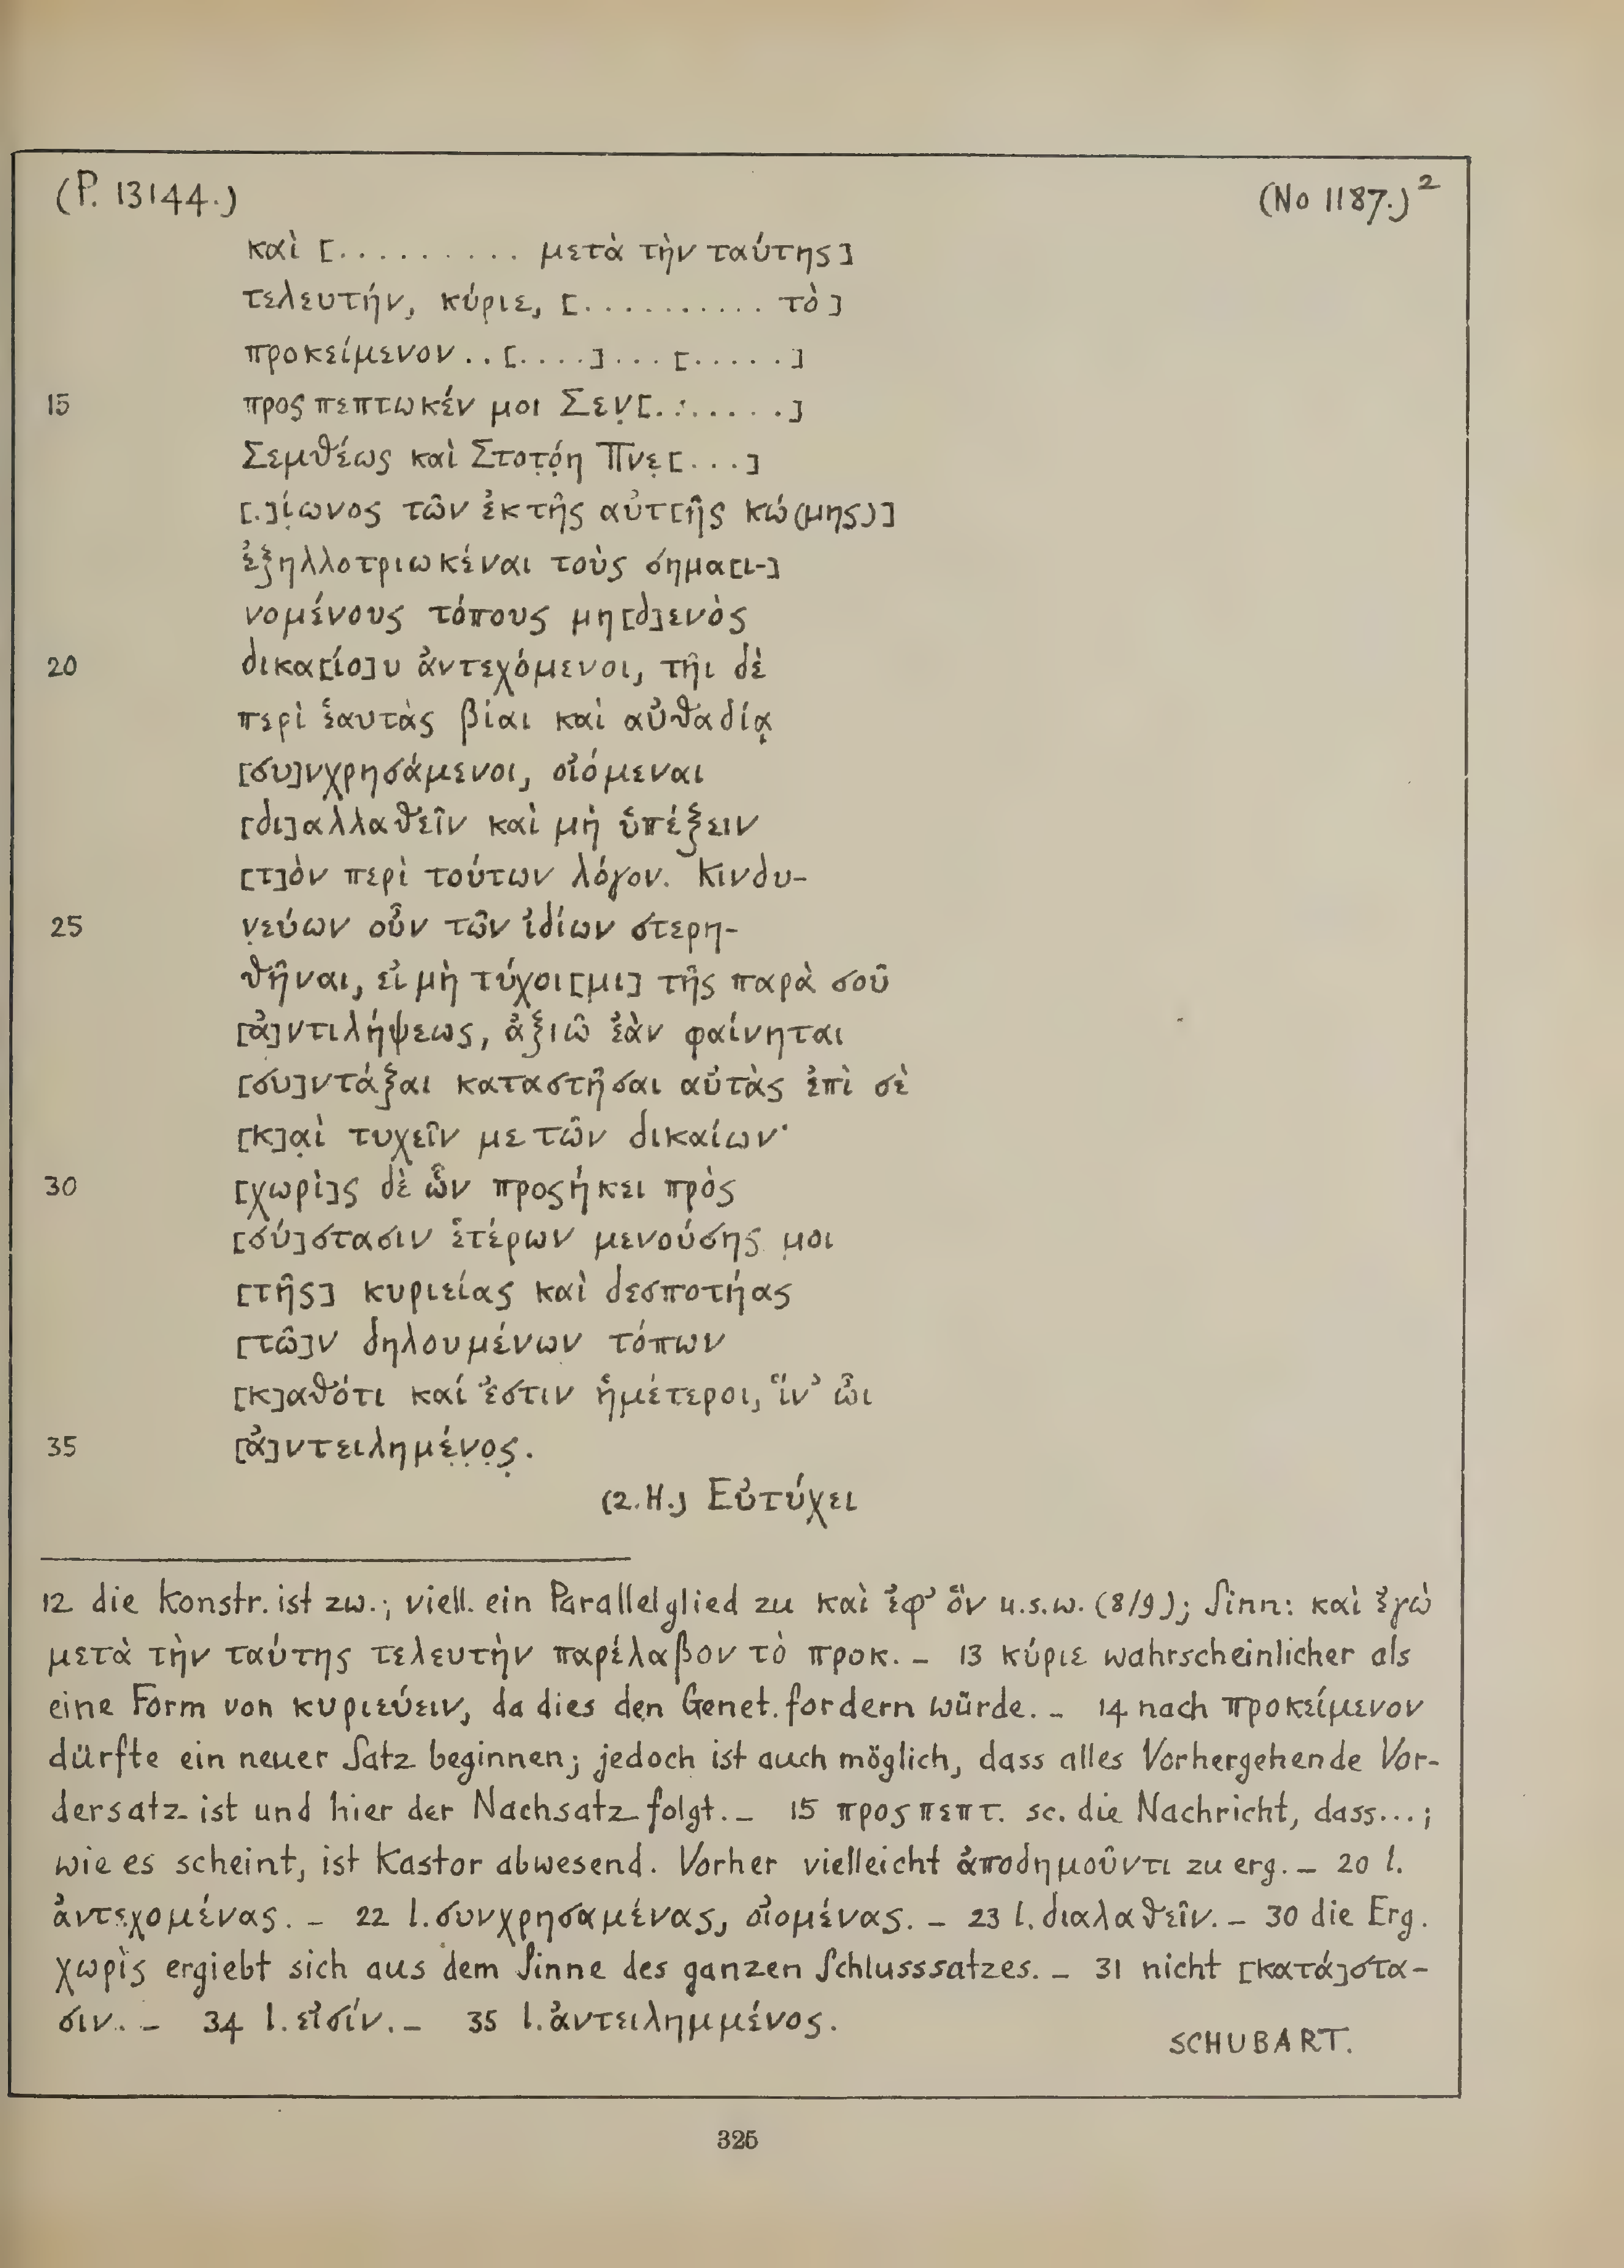 (P. 13144.) (No 1187.)²
καὶ [. . . . . . . . . μετὰ τὴν ταύτης]
τελευτήν, κύριε, [. . . . . . . . . . τὸ]
προκείμενον . . [. . . .] . . . [. . . . .]
15 προςπεπτωκέν μοι Σεν̣[. . . . . . .]
Σεμθέως καὶ Στοτ̣ό̣η Πνε̣[. . .]
[.]ί̣ωνος τῶν ἐκ τῆς αὐτ[ῆς κώ(μης)]
ἐξηλλοτριωκέναι τοὺς σημα[ι-]
νομένους τόπους μη[δ]ενὸς
20 δικα[ίο]υ ἀντεχόμενοι, τῆι δὲ
περὶ ἑαυτὰς βίαι καὶ αὐθαδίᾳ
[συ]νχρησάμενοι, οἰόμεναι
[δι]αλλαθεῖν καὶ μὴ ὑπέξειν
[τ]ὸν περὶ τούτων λόγον. Κινδυ-
25 ν̣εύων οὖν τῶν ἰδίων στερη-
θῆναι, εἰ μὴ τύχοι[μι] τῆς παρὰ σοῦ
[ἀ]ντιλήψεως, ἀξιῶ ἐὰν φαίνηται
[συ]ντάξαι καταστῆσαι αὐτὰς ἐπὶ σὲ
[κ]α̣ὶ τυχεῖν με τῶν δικαίων·
30 [χωρὶ]ς δὲ ὧν προςήκει πρὸς
[σύ]στασιν ἑτέρων μενούσης μοι
[τῆς] κυριείας καὶ δεσποτήας
[τῶ]ν δηλουμένων τόπων
[κ]αθότι καί ἐστιν ἡμέτεροι, ἵν' ὦι
35 [ἀ]ντειλημέ̣ν̣ο̣ς̣.
(2. H.) Εὐτύχει
12 die Konstr. ist zw.; viell. ein Parallelglied zu καὶ ἐφ' ὃν u.s.w. (8/9); Sinn: καὶ ἐγὼ
μετὰ τὴν ταύτης τελευτὴν παρέλαβον τὸ προκ. – 13 κύριε wahrscheinlicher als
eine Form von κυριεύειν, da dies den Genet. fordern würde. – 14 nach προκείμενον
dürfte ein neuer Satz beginnen; jedoch ist auch möglich, dass alles Vorhergehende Vor-
dersatz ist und hier der Nachsatz folgt. – 15 προςπεπτ. sc. die Nachricht, dass...;
wie es scheint, ist Kastor abwesend. Vorher vielleicht ἀποδημοῦντι zu erg. – 20 l.
ἀντεχομένας. – 22 l. συνχρησαμένας, οἰομένας. – 23 l. διαλαθεῖν. – 30 die Erg.
χωρὶς ergiebt sich aus dem Sinne des ganzen Schlusssatzes. – 31 nicht [κατά]στα-
σιν. – 34 l. εἰσίν. – 35 l. ἀντειλημμένος.
SCHUBART.
325